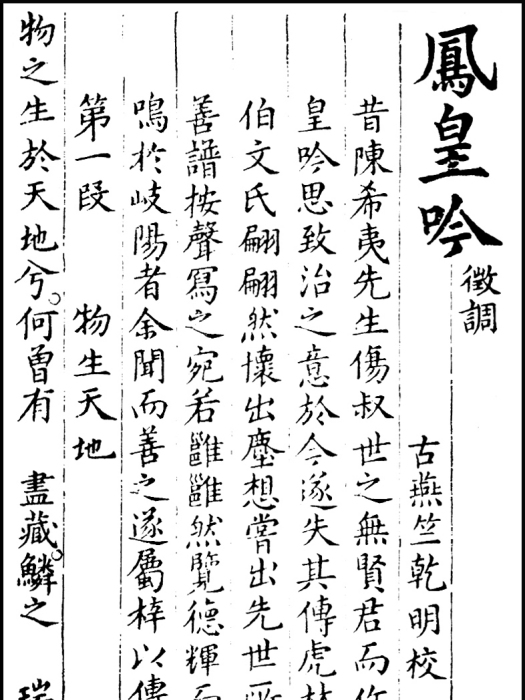 鳳皇吟
徵調
古燕竺乾明校
昔陳希夷先生傷叔世之無賢君而作
皇吟思致治之意於今遂失其傳虎林
伯文氏翩翩然懷出塵想嘗出先世所
善譜按聲寫之宛若雝雝然覽德輝而
鳴於岐陽者余聞而善之遂屬梓以傳
第一段 物生天地
物之生於天地兮何曾有 盡藏鱗之 瑞